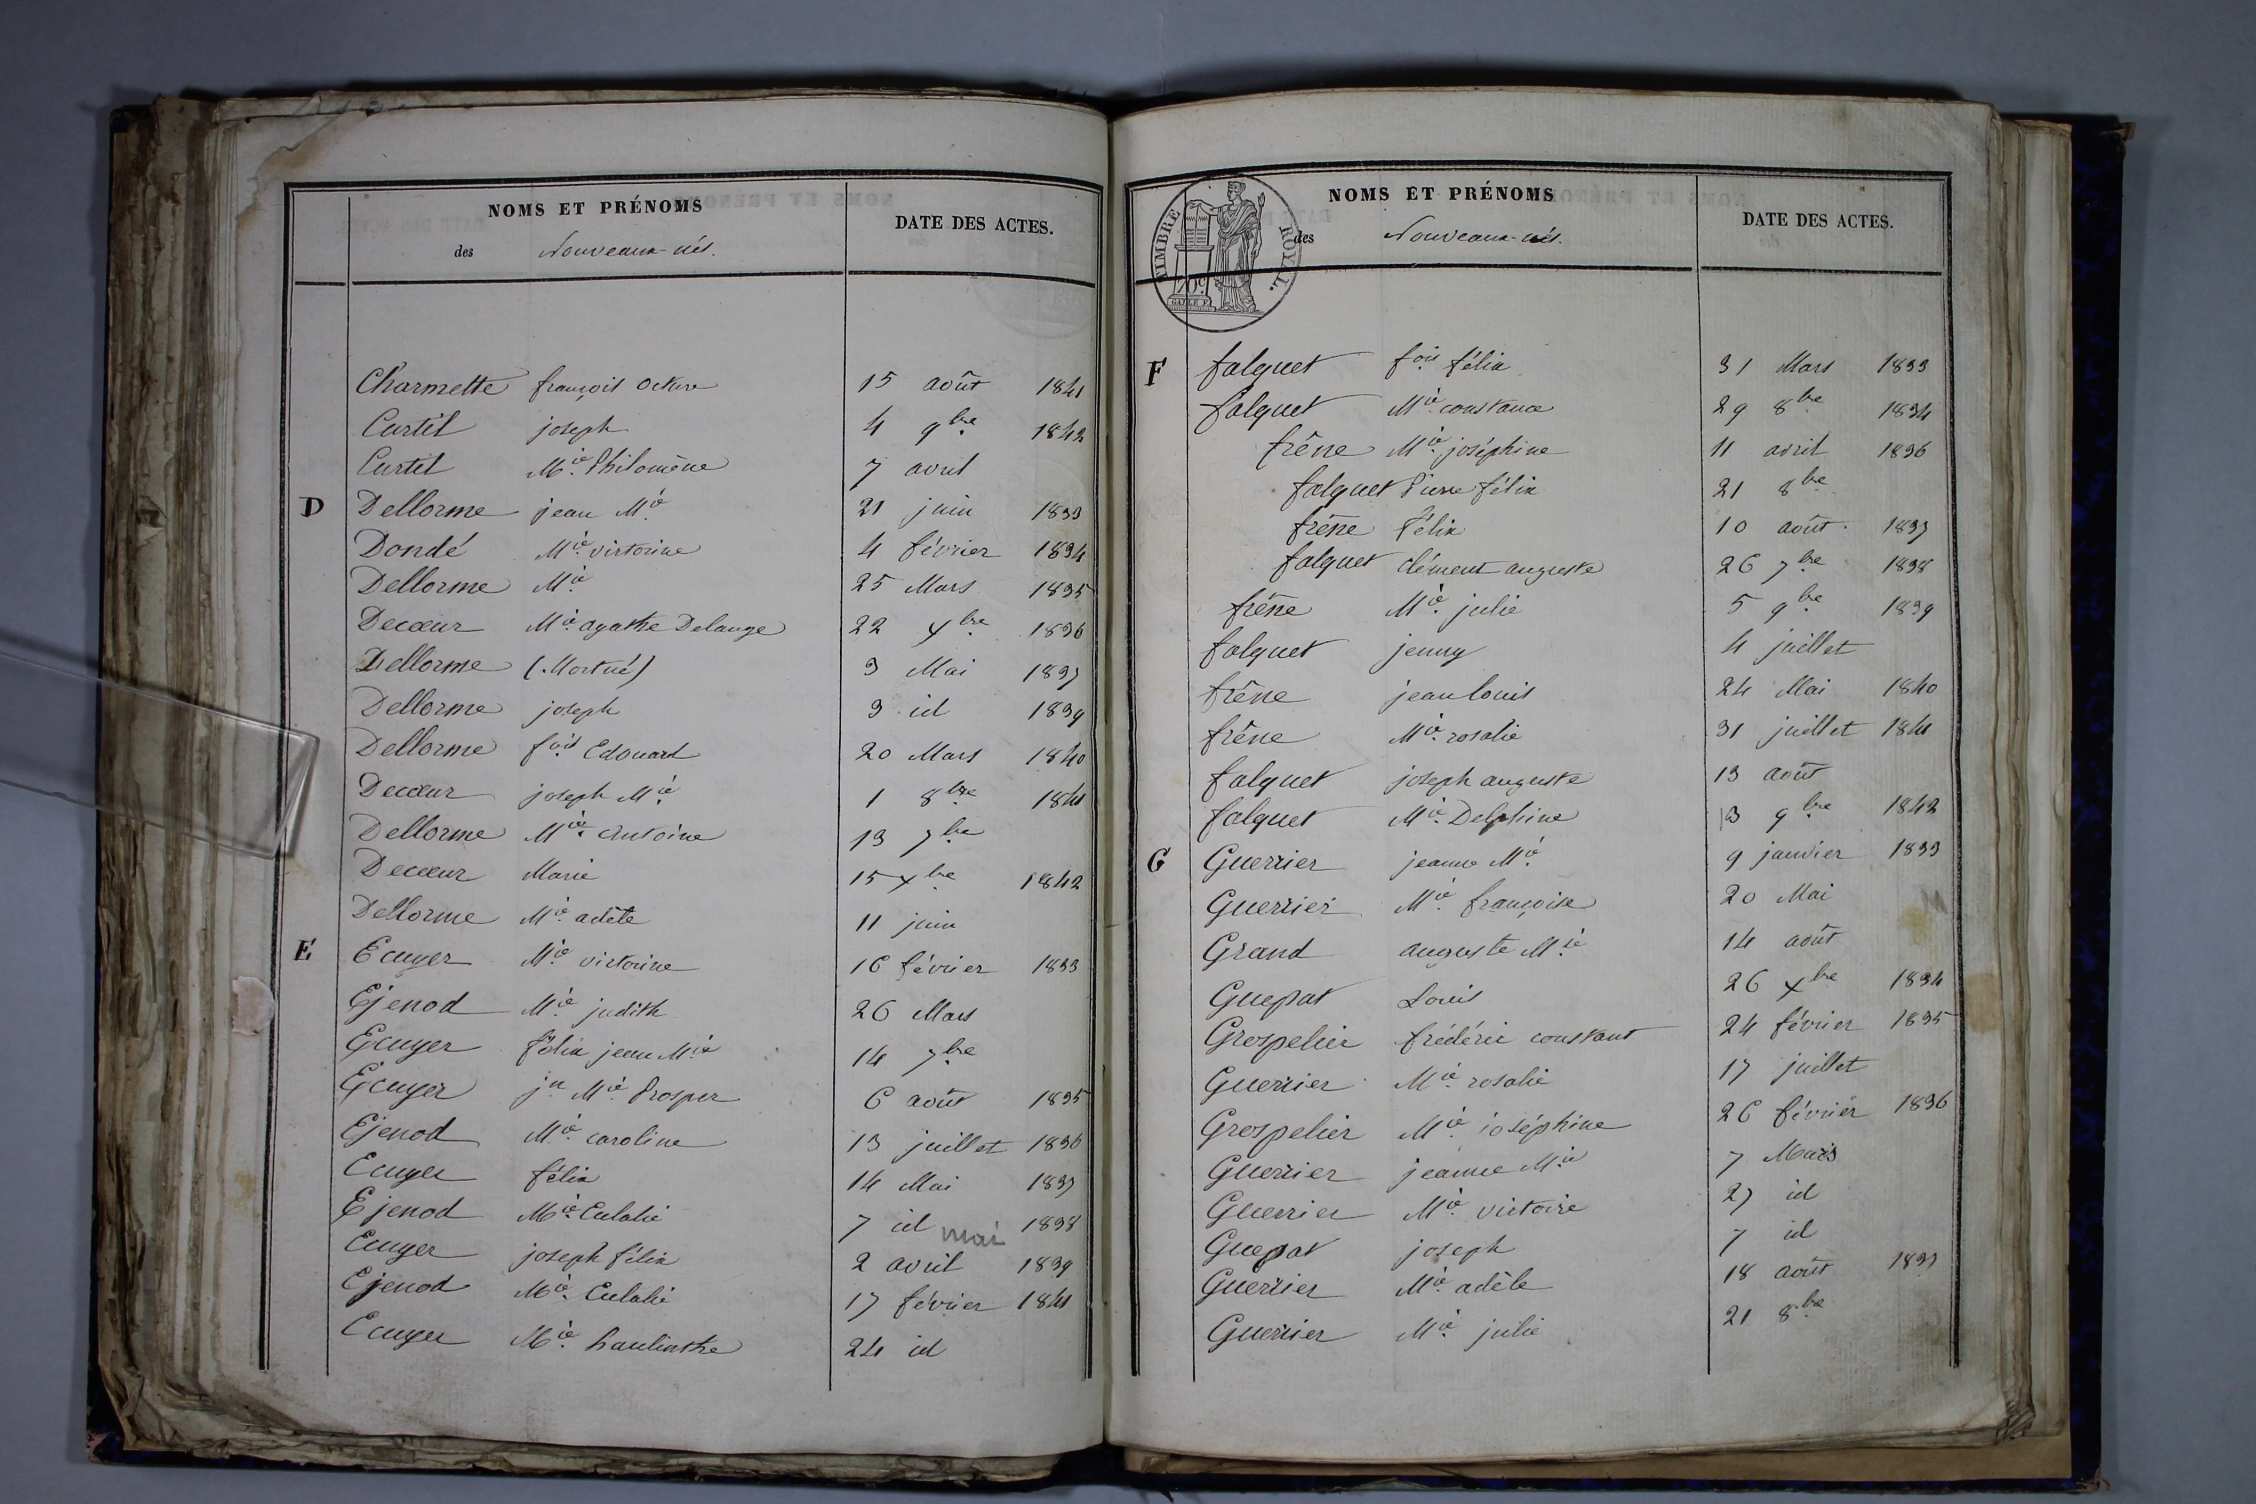 NOMS ET PRÉNOMS
des Nouveaux-nés.
DATE DES ACTES.
Charmette françois octave 15 août 1841
Curtil joseph 4 9bre 1842
Curtil Mie Philomène 7 avril
D Dellorme jean Mie 21 juin 1833
Dondé Mie victorine 4 février 1834
Dellorme Mie 25 Mars 1835
Decœur Mie agathe Delange 22 Xbre 1836
Dellorme (Mortné) 3 Mai 1837
Dellorme joseph 3 id 1839
Dellorme fois Edouard 20 Mars 1840
Decœur joseph Mie 1 8bre 1841
Dellorme Mie Antoine 13 7bre
Decœur Marie 15 Xbre 1842
Dellorme Mie adèle 11 juin
E Ecuyer Mie victorine 16 février 1833
Ejenod Mie judith 26 Mars
Ecuyer félix jean Mie 14 7bre
Ecuyer jn Mie Prosper 6 août 1835
Ejenod Mie caroline 13 juillet 1836
Ecuyer félix 14 Mai 1837
Ejenod Mie Eulalie 7 id mai 1838
Ecuyer joseph félix 2 avril 1839
Ejenod Mie Eulalie 17 février 1841
Ecuyer Mie 24 id
TIMBRE ROYAL.
70c
NOMS ET PRÉNOMS
des Nouveaux-nés.
DATE DES ACTES.
F falquet fois félix 31 Mars 1833
falquet Mie constance 29 8bre 1834
frêne Mie joséphine 11 avril 1836
falquet Pierre félix 21 8bre
frêne Félix 10 août 1837
falquet clément auguste 26 7bre 1838
frêne Mie julie 5 9bre 1839
falquet jenny 4 juillet
frêne jean louis 24 Mai 1840
frêne Mie rosalie 31 juillet 1841
falquet joseph auguste 13 août
falquet Mie Delphine 3 9bre 1842
G Guerrier jeanne Mie 9 janvier 1833
Guerrier Mie françoise 20 Mai
Grand auguste Mie 14 août
Guepat Louis 26 Xbre 1834
Grospelier frédéric constant 24 février 1835
Guerrier Mie rosalie 17 juillet
Grospelier Mie joséphine 26 février 1836
Guerrier jeanne Mie 7 Mars
Guerrier Mie victoire 27 id
Guepat joseph 7 id
Guerrier Mie adèle 18 août 1837
Guerrier Mie julie 21 8bre